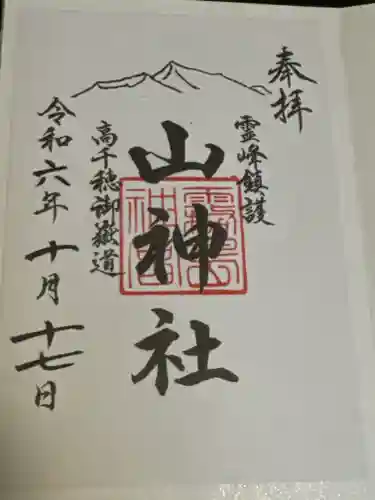 奉拝
霊峰鎮護
山神社
高千穂御嶽道
令和六年十月十七日